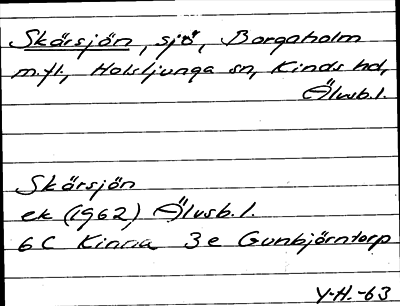 Skärsjön, sjö, Borgaholm
m.fl., Holsljunga sn, Kinds hd,
Älvsb.l.
Skärsjön
ek (1962) Älvsb.l.
6C Kinna 3e Gunbjörntorp
Y-H.-63